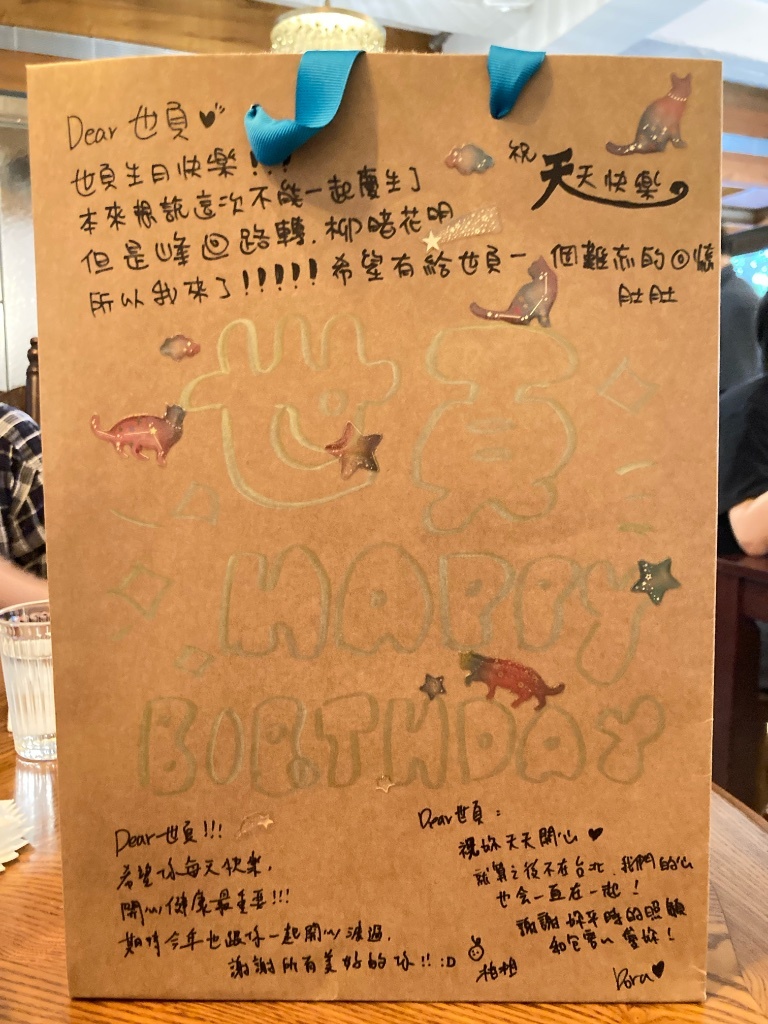 Dear 世員
世員生日快樂！！！
本來根說這次不能一起慶生了
但是峰迴路轉、柳暗花明
所以我來了！！！！！希望有給世員一個難忘的回憶
肚肚
祝
天天快樂
世員
HAPPY
BIRTHDAY
Dear 世員!!!
希望你每天快樂,
開心健康最重要!!!
期待今年也跟你一起開心渡過,
謝謝所有美好的你!! :D
Dear 世員：
祝妳天天開心
就算之後不在台北、我們的心
也會一直在一起！
謝謝妳平時的照顧
和包容～愛妳！
Dora